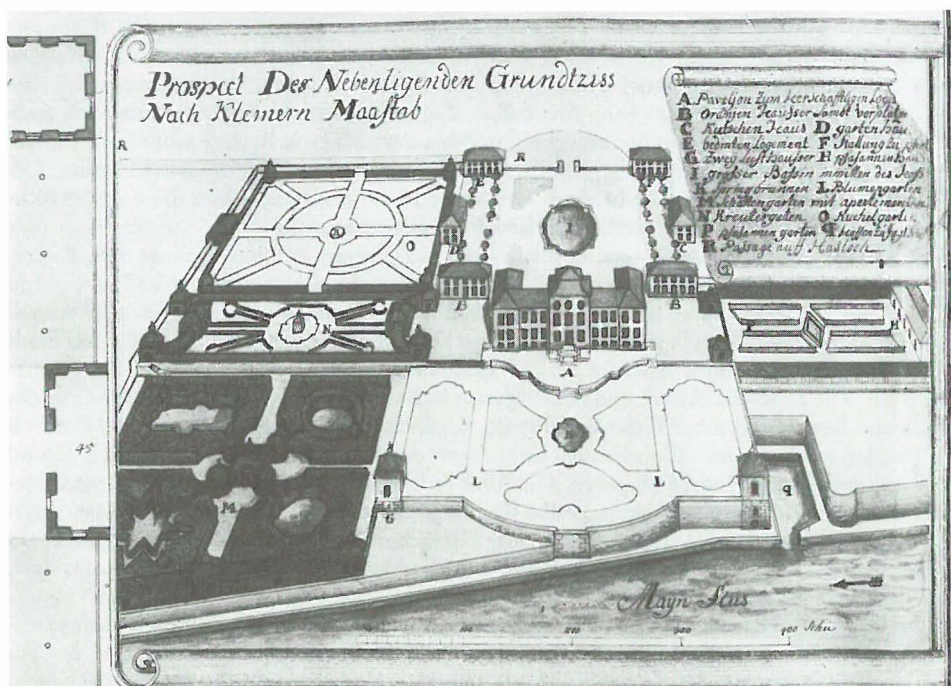 Prospect Des Nebenligenden Grundtziss
Nach Kleinern Maastab
A Paveljon zum heerschafftligen Logis
B Oranien Heusser sambt Vorplatz
C Kutschen Haus D garten hau
E beamten Logement F Stalung zu pferd
G Zwey Lusthausser H phasannen haus
I grosser Bassin in mitten des
K Springbrunnen L Blumengarten
M Schattengarten mit apertement
N Kreutergarten O Kuchelgarten
P phasannen garten q
R Passage auff Hasloch
R
R
E
F
I
O
D
C
B
B
N
H
A
K
45
L
L
M
G
q
Mayn Flus
100
300
400 Schu